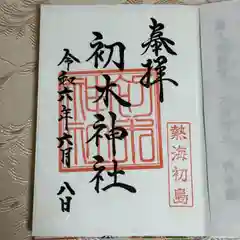 奉拝
初木神社
令和六年六月八日
熱海初島